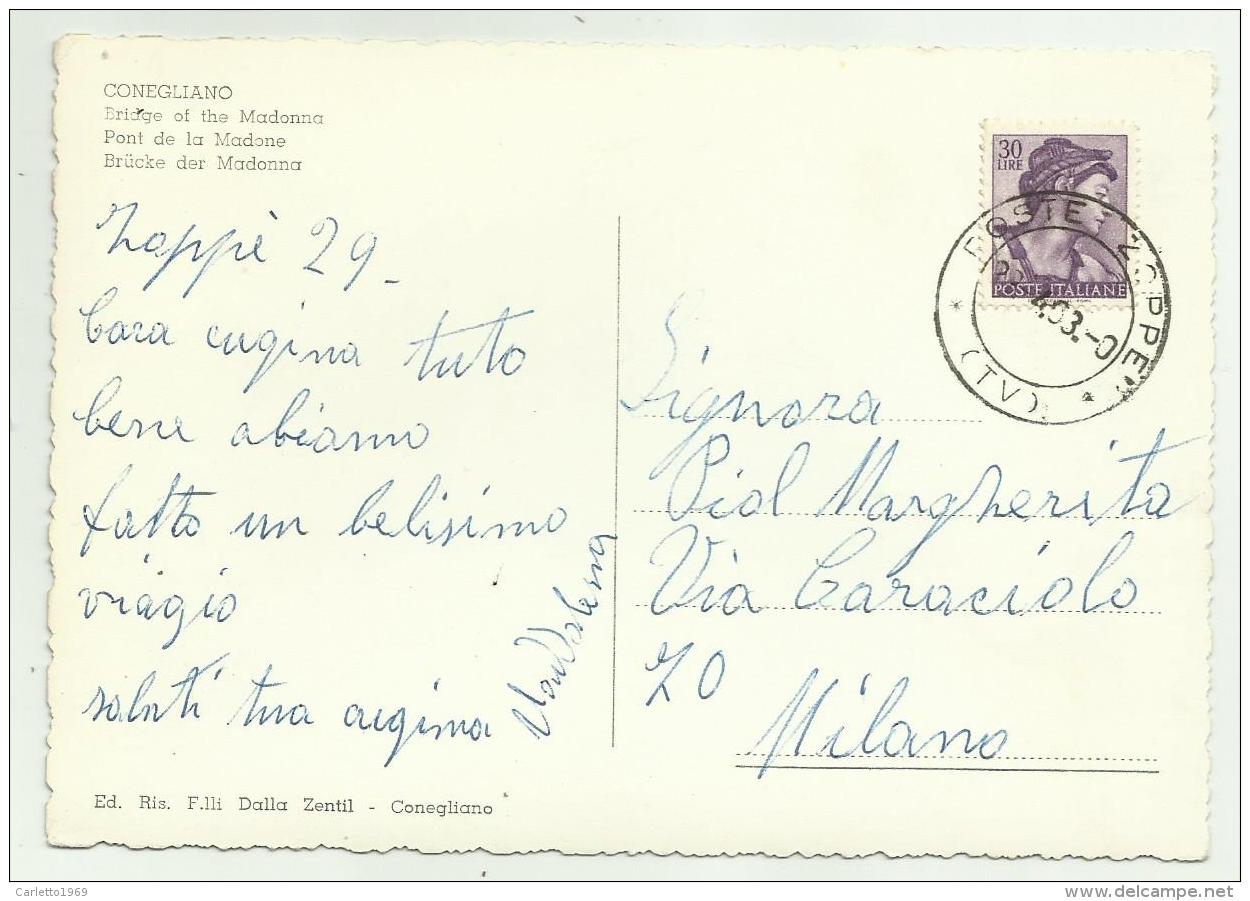 CONEGLIANO
Bridge of the Madonna
Pont de la Madone
Brücke der Madonna
Zoppè 29-
Cara cugina tuto
bene abiamo
fatto un belisimo
viagio
saluti tua cugina
Maddalena
Ed. Ris. F.lli Dalla Zentil - Conegliano
30
LIRE
POSTE ITALIANE
POSTE ZOPPE'
(TV)
Signora
Piol Margherita
Via Caraciolo
70
Milano
Carletto1969
www.delcampe.net